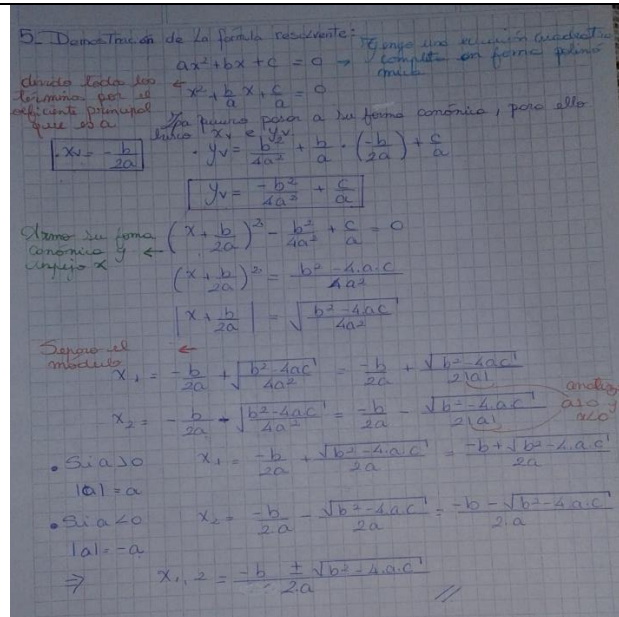 5_ Demostración de la fórmula resolvente:
ax² + bx + c = 0 → Tengo una ecuación cuadrática completa en forma polinómica
divido todos los términos por el coeficiente principal que es a ← x² + b/a x + c/a = 0
para pasar a su forma canónica, para ello
busco xv e yv
xv = -b/2a . yv = b²/4a² + b/a · (-b/2a) + c/a
yv = -b²/4a² + c/a
Armo su forma canónica y despejo x ← (x + b/2a)² - b²/4a² + c/a = 0
(x + b/2a)² = b² - 4.a.c/4a²
|x + b/2a| = √(b² - 4.ac/4a²)
Separo el módulo ←
x₁ = -b/2a + √(b² - 4ac/4a²) = -b/2a + √(b² - 4ac)/2|a|
x₂ = -b/2a - √(b² - 4ac/4a²) = -b/2a - √(b² - 4.a.c)/2|a| a>0 y a<0
• Si a>0 x₁ = -b/2a + √(b² - 4.a.c)/2a = -b + √(b² - 4.a.c)/2a
|a| = a
• Si a<0 x₂ = -b/2a - √(b² - 4.a.c)/2a = -b - √(b² - 4.a.c)/2.a
|a| = -a
⇒ x₁,₂ = -b ± √(b² - 4.a.c)/2.a //